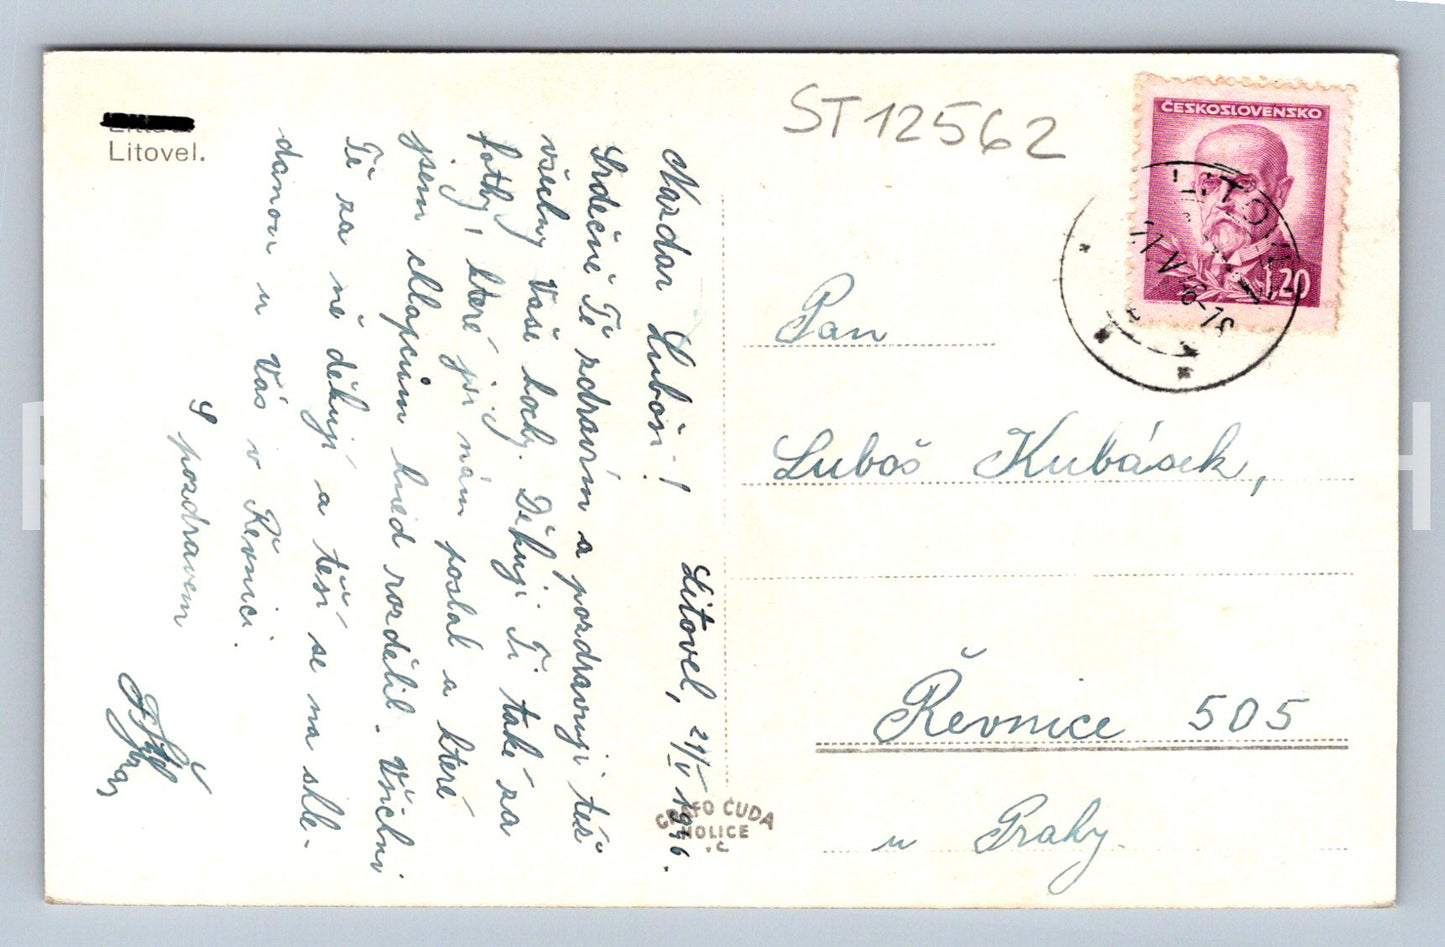 Litovel.
ST12562
ČESKOSLOVENSKO
1.20
Nazdar Luboši!
Litovel, 21/V 1946.
Srdečně Tě zdravím a pozdravuji též
všechny Vaše hochy. Děkuji Ti také za
fotky, které jsi nám poslal a které
jsem chlapcům hned rozdělil. Všichni
Ti za ně děkují a těší se na shle-
danou u Vás v Řevnici.
S pozdravem
Pan
Luboš Kubásek,
Řevnice 505
u Prahy.
GRAFO ČUDA
HOLICE